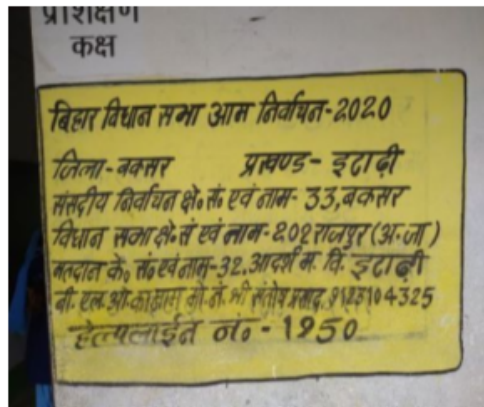 प्रशिक्षण
कक्ष
बिहार विधान सभा आम निर्वाचन-2020
जिला-बक्सर प्रखण्ड-इटाढ़ी
संसदीय निर्वाचन क्षे.सं. एवं नाम-33,बक्सर
विधान सभा क्षे.सं एवं नाम-202 राजपुर (अ.जा)
मतदान के. सं. एवं नाम-32,आदर्श म. वि. इटाढ़ी
बी. एल. ओ. का नाम मो.नं. श्री संतोष प्रसाद,
हेल्पलाईन नं.-1950